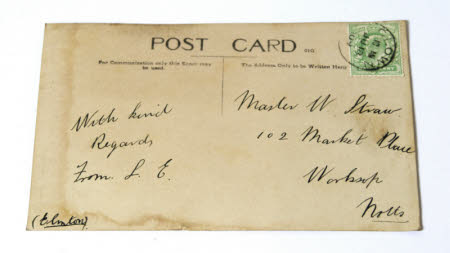 POST CARD
For Communication only this Space may be used.
The Address Only to be Written Here
With kind
Regards
From L. E.
(Elmton)
Master W. Straw
102 Market Place
Worksop
Notts